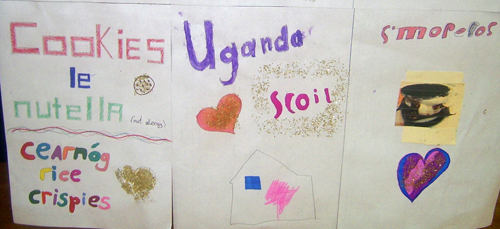 Cookies
le
nutella (nut allergy)
Cearnóg
rice
crispies
Uganda
Scoil
S'mopelos